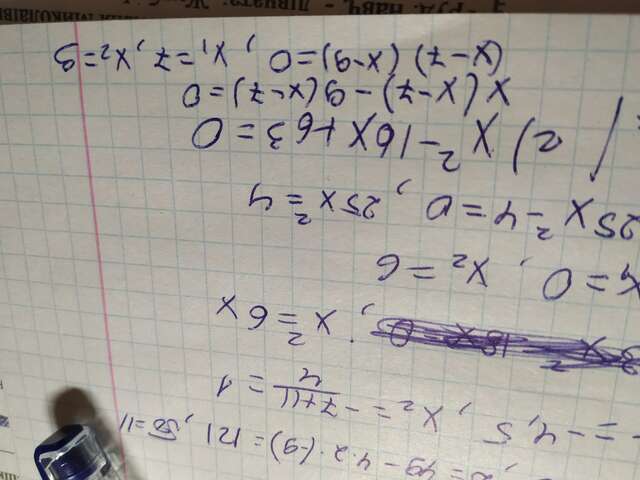 D = 49 - 4·2·(-9) = 121, √D = 11
= -4,5, x₂ = (-7+11)/4 = 1
; x² = 6x
x₁ = 0, x₂ = 6
25x² - 4 = 0, 25x² = 4
г) x² - 16x + 63 = 0
x(x-7) - 9(x-7) = 0
(x-7)(x-9) = 0, x₁ = 7, x₂ = 9
груд. навч. - дівчата: